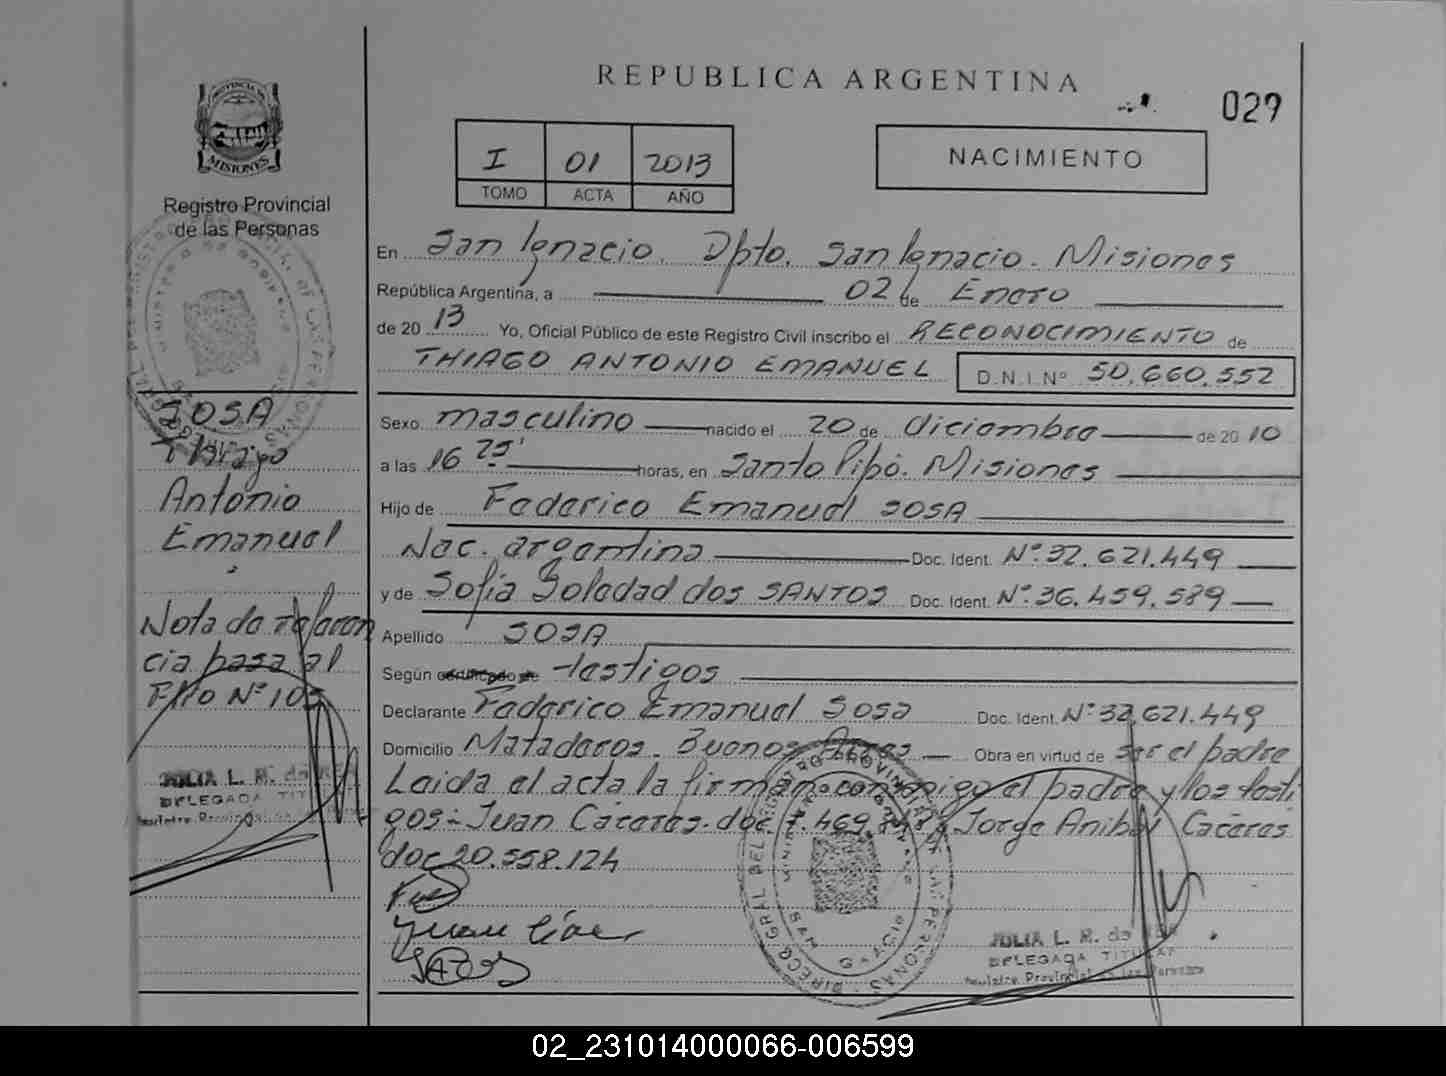 REPUBLICA ARGENTINA
029
PROVINCIA DE
MISIONES
Registro Provincial
de las Personas
I 01 2013
TOMO ACTA AÑO
NACIMIENTO
En San Ignacio. Dpto. San Ignacio. Misiones
República Argentina, a 02 de Enero
de 2013 Yo, Oficial Público de este Registro Civil inscribo el RECONOCIMIENTO de
THIAGO ANTONIO EMANUEL D.N.I.Nº 50.660.552
Sexo masculino nacido el 20 de diciembre de 2010
a las 16 25' horas, en Santo Pipó. Misiones
Hijo de Federico Emanuel SOSA
Nac. argentina Doc. Ident. Nº 32.621.449
y de Sofia Soledad dos SANTOS Doc. Ident. Nº 36.459.589
Apellido SOSA
Según certificado de testigos
Declarante Federico Emanuel Sosa Doc. Ident. Nº 32.621.449
Domicilio Mataderos. Buenos Aires Obra en virtud de ser el padre
Leida el acta la firman conmigo el padre y los testi
gos: Juan Caceres. doc 7.469. Jorge Anibal Caceres
doc 20.558.124
SOSA
Thiago
Antonio
Emanuel
Nota de referen
cia pasa al
Flio Nº 105
JULIA L. R. de
DELEGADA TITULAR
JULIA L. R. de
DELEGADA TITULAR
Registro Provincial de las Personas
02_231014000066-006599